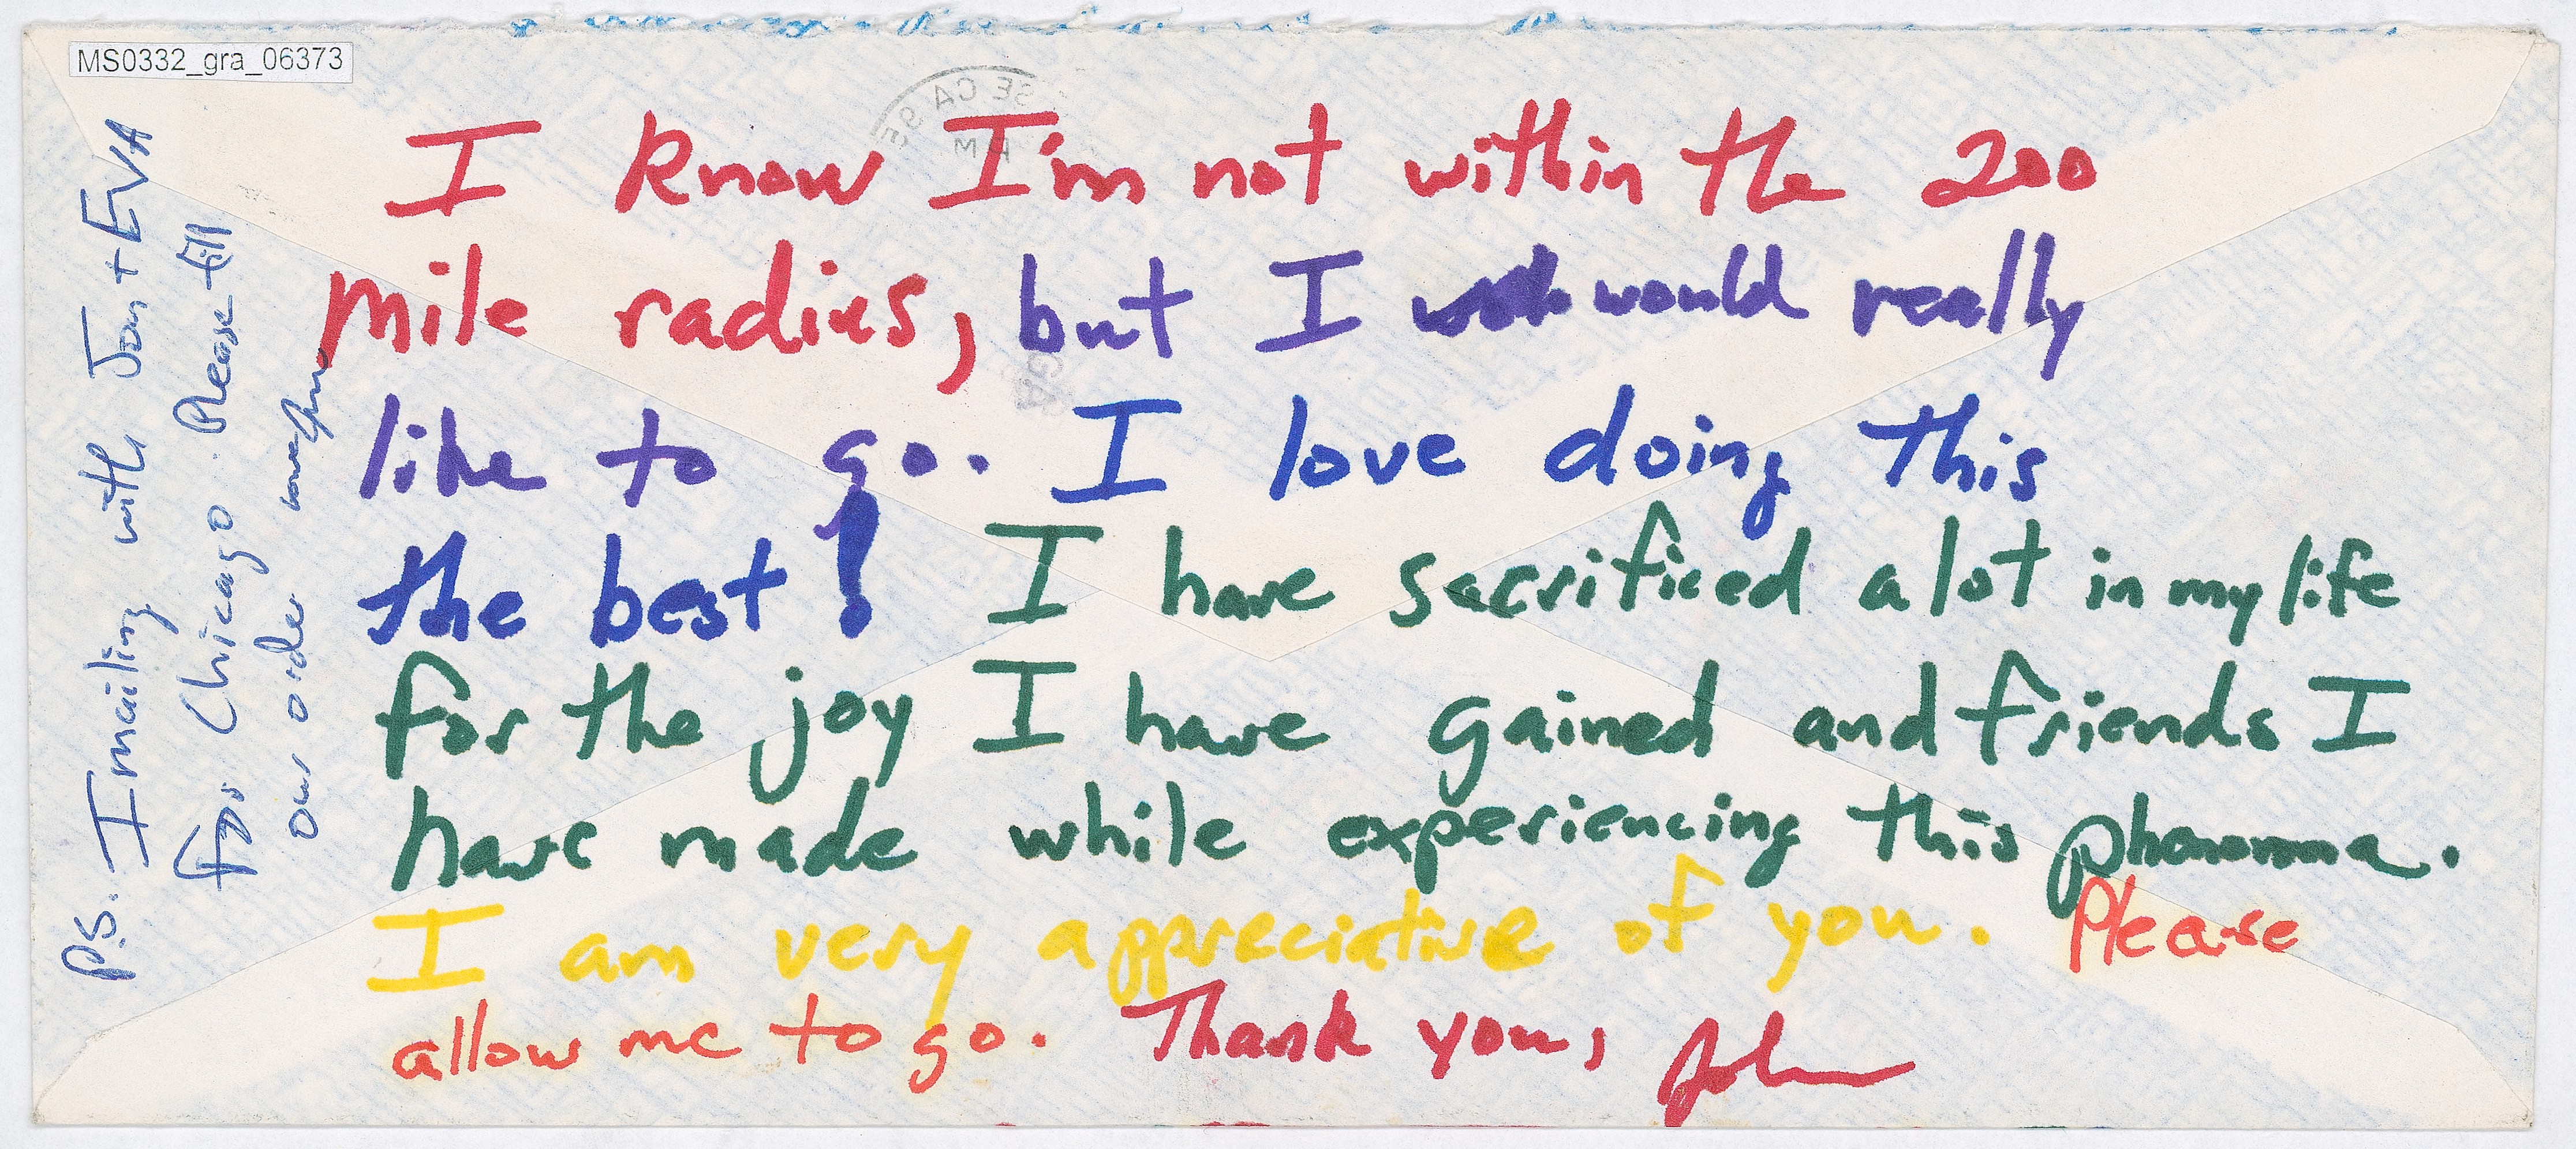 MS0332_gra_06373
I know I'm not within the 200
mile radius, but I would really
like to go. I love doing this
the best! I have sacrificed alot in my life
for the joy I have gained and friends I
have made while experiencing this
I am very appreciative of you. Please
allow me to go. Thank you, John
P.S. I mailing with Jon + EVA
for Chicago. Please fill
our order
SE CA 95
PM